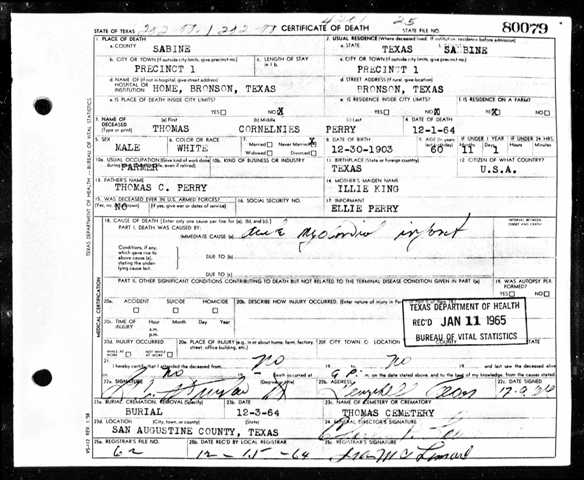 STATE OF TEXAS
CERTIFICATE OF DEATH
STATE FILE NO.
80079
1. PLACE OF DEATH
a. COUNTY
SABINE
2. USUAL RESIDENCE (Where deceased lived. If institution: residence before admission)
a. STATE
TEXAS
SABINE
b. CITY OR TOWN (If outside city limits, give precinct no.)
PRECINCT 1
c. LENGTH OF STAY
c. CITY OR TOWN (If outside city limits, give precinct no.)
PRECINCT 1
d. NAME OF (If not in hospital, give street address)
HOSPITAL OR
INSTITUTION
HOME, BRONSON, TEXAS
d. STREET ADDRESS (If rural, give location)
BRONSON, TEXAS
e. IS PLACE OF DEATH INSIDE CITY LIMITS?
YES NO X
e. IS RESIDENCE INSIDE CITY LIMITS?
YES NO X
f. IS RESIDENCE ON A FARM?
YES NO X
3. NAME OF
DECEASED
(Type or print)
(a) First
THOMAS
(b) Middle
CORNELNIES
(c) Last
PERRY
4. DATE OF DEATH
12-1-64
5. SEX
MALE
6. COLOR OR RACE
WHITE
7. Married Never Married X
Widowed Divorced
8. DATE OF BIRTH
12-30-1903
9. AGE (In years
60
IF UNDER 1 YEAR
11 1
IF UNDER 24 HRS.
10a. USUAL OCCUPATION (Give kind of work done
FARMER
10b. KIND OF BUSINESS OR INDUSTRY
11. BIRTHPLACE (State or foreign country)
TEXAS
12. CITIZEN OF WHAT COUNTRY?
U.S.A.
13. FATHER'S NAME
THOMAS C. PERRY
14. MOTHER'S MAIDEN NAME
ILLIE KING
15. WAS DECEASED EVER IN U.S. ARMED FORCES?
NO
16. SOCIAL SECURITY NO.
17. INFORMANT
ELLIE PERRY
18. CAUSE OF DEATH [Enter only one cause per line for (a), (b), and (c).]
PART I. DEATH WAS CAUSED BY:
IMMEDIATE CAUSE (a)
myocardial infarct
INTERVAL BETWEEN
ONSET AND DEATH
Conditions, if any,
which gave rise to
above cause (a),
stating the under-
lying cause last.
DUE TO (b)
DUE TO (c)
PART II. OTHER SIGNIFICANT CONDITIONS CONTRIBUTING TO DEATH BUT NOT RELATED TO THE TERMINAL DISEASE CONDITION GIVEN IN PART I(a)
19. WAS AUTOPSY PERFORMED?
YES NO
20a. ACCIDENT SUICIDE HOMICIDE
20b. DESCRIBE HOW INJURY OCCURRED.
20c. TIME OF INJURY
Hour Month Day Year
a.m.
p.m.
TEXAS DEPARTMENT OF HEALTH
REC'D JAN 11 1965
BUREAU OF VITAL STATISTICS
20d. INJURY OCCURRED
WHILE AT WORK NOT WHILE AT WORK
20e. PLACE OF INJURY (e.g. in or about home, farm, factory, street, office building, etc.)
20f. CITY, TOWN
21. I hereby certify that I attended the deceased from
no
no
and last saw the deceased
22a. SIGNATURE
(Degree or title)
22b. ADDRESS
22c. DATE SIGNED
23a. BURIAL, CREMATION, REMOVAL (Specify)
BURIAL
23b. DATE
12-3-64
23c. NAME OF CEMETERY OR CREMATORY
THOMAS CEMETERY
23d. LOCATION
SAN AUGUSTINE COUNTY, TEXAS
24. FUNERAL DIRECTOR'S SIGNATURE
25a. REGISTRAR'S FILE NO.
62
25b. DATE REC'D BY LOCAL REGISTRAR
12-15-64
25c. REGISTRAR'S SIGNATURE
TEXAS DEPARTMENT OF HEALTH — BUREAU OF VITAL STATISTICS
MEDICAL CERTIFICATION